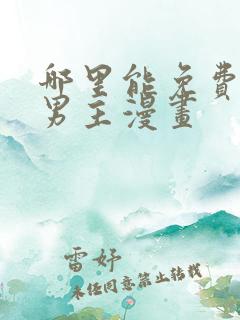 哪里能免费
男主漫畫
雷妤
未经同意禁止转载